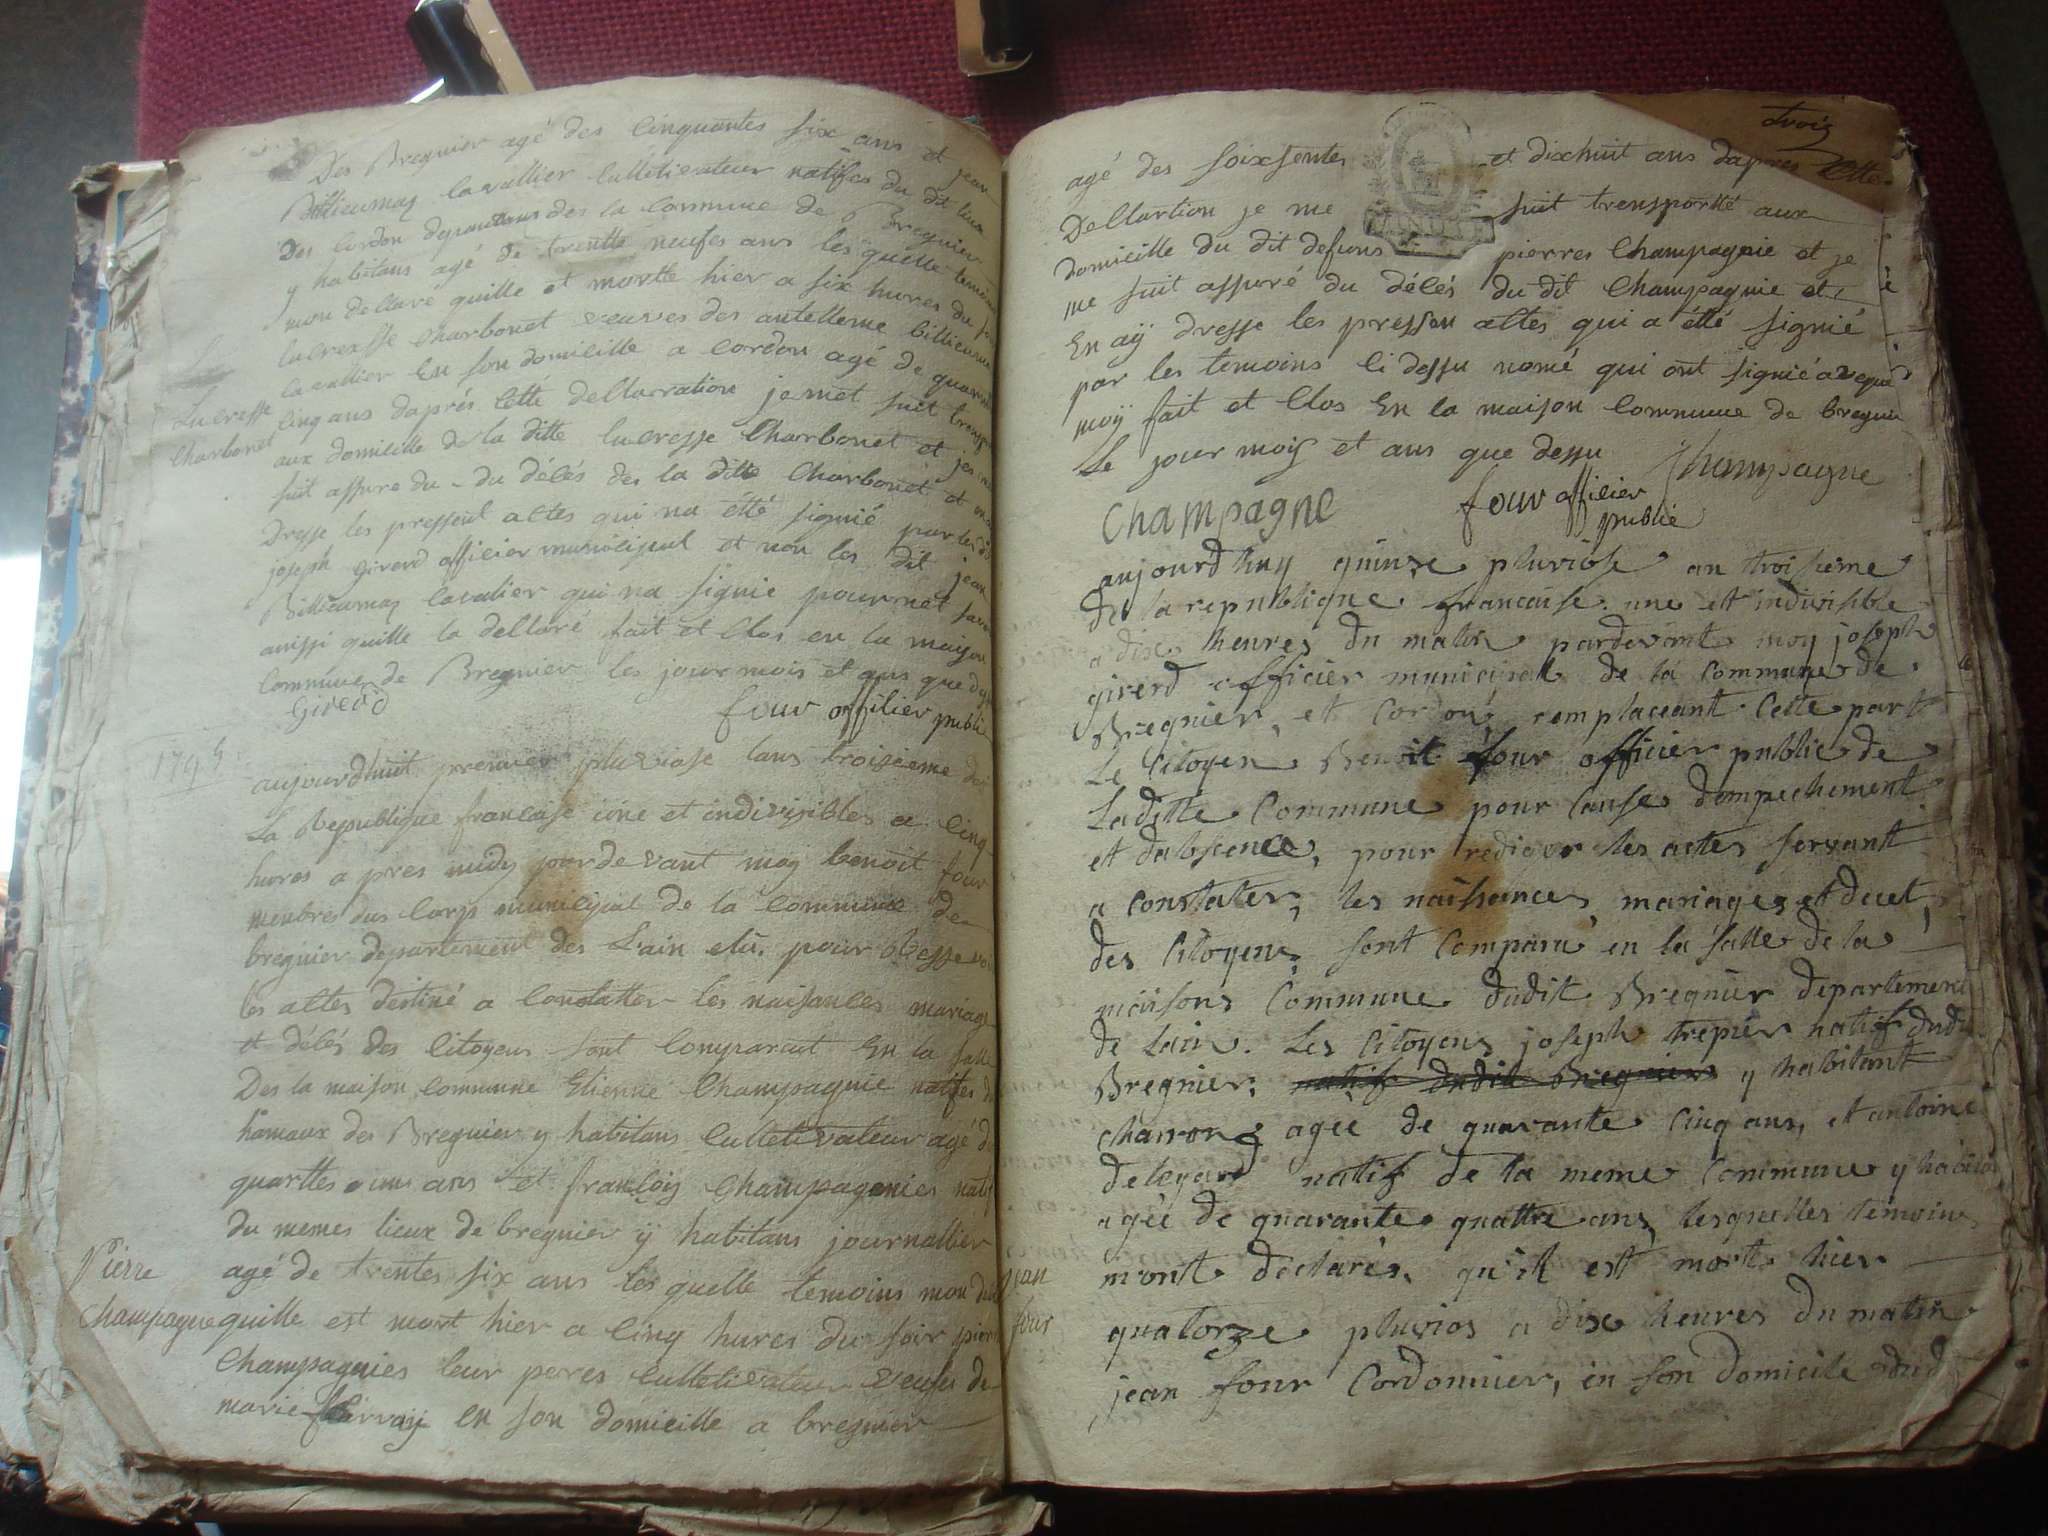 Des Bregnier agé des Cinquantes six ans et jean
Billieumaz Cavallier Culletivateur natifes du dit lieux
Des Cordon departans des la Commune de Bregnier
y habitans agé de trentte neufes ans les quelle temoins
mon dellaré quille et mortte hier a six hures du soir
lucresse Charbonet veuves des antellerne billieumaz
Cavallier En son domicille a Cordon agé de quarante
Lucresse
Charbonet
Cinq ans daprés Cette dellarration je met suit transporté
aux domicille de la ditte lucresse Charbonet et je me
suit assure du - du délés des la ditte Charbonet et en ai
Dresse les pressent altes qui na étté signié par les dit
joseph Girerd officier municipal et non les dit jean
Billieumaz Cavalier qui na signié pour net savoir
ainssi quille la dellaré fait et Clos en la maison
Commune de Bregnier les jour mois et ans que dessu
Girerd four offilier publie
1795
aujourdhuit premier pluviose lans troisieme de
La Republique francaise une et indivisibles a Cinq
hures a pres midy par devant moy benoit four
menbres dus Corps municipal de la Commune de
bregnier departement des Lain elu pour Resse voir
les altes destiné a Constatter les naisances mariage
et délés des Citoyens sont Compareut En la salle
Des la maison Commune Etienne Champagnie natifes du
hamaux des Bregnier y habitans Culletivateur agé de
quarttes uns ans et francois Champagnies natif
du memes lieux de bregnier ÿ habitans journallier
Pierre
Champagne
agé de trentes six ans les quelle temoins mon dellaré
quille est mort hier a Cinq hures du soir pierre
Champagnies leur peres Culletivateur veufes de
marie en son domicille a bregnier
trois
agé des soixsentes et dixhuit ans dapres Cette
Dellartion je me suit transportté aux
domicille du dit defuns pierres Champagnie et je
me suit assuré du délés du dit Champagnie et
En aÿ dresse les pressen altes qui a étté signié
par les temoins Ci dessu nomé qui ont signié aveque
moÿ fait et Clos En la maison Commune de bregnier
Le jour mois et ans que dessu
Champagne
Champagne four offilier
publie
aujourdhuy quinze pluviose an troisieme
de la republique francaise une et indivisible
a dix heures du matin pardevant moy joseph
girerd officier municipal de la commune de
Bregnier, et Cordon remplaceant Cette part
Le Citoyen Benoit four officier public de
Laditte Commune pour Cause dempechement
et dabscence, pour rediger les actes servant
a constater, les naissances, mariages et decet,
des Citoyens, sont Comparu en la salle de la
maisons Commune dudit Bregnier departement
de Lain. Les Citoyens joseph trepier natif dudit
Bregnier, natif dudit Bregnier y habitant
charron agée de quarante Cinq ans, et antoine
deleyard natif de la meme Commune y habitant
agée de quarante quattre ans, lesquelles temoins
Jean
four
mont déclarés, qu'il est mort hier
quatorze pluvios a dix heures du matin
jean four Cordonnier, en son domicile dudit